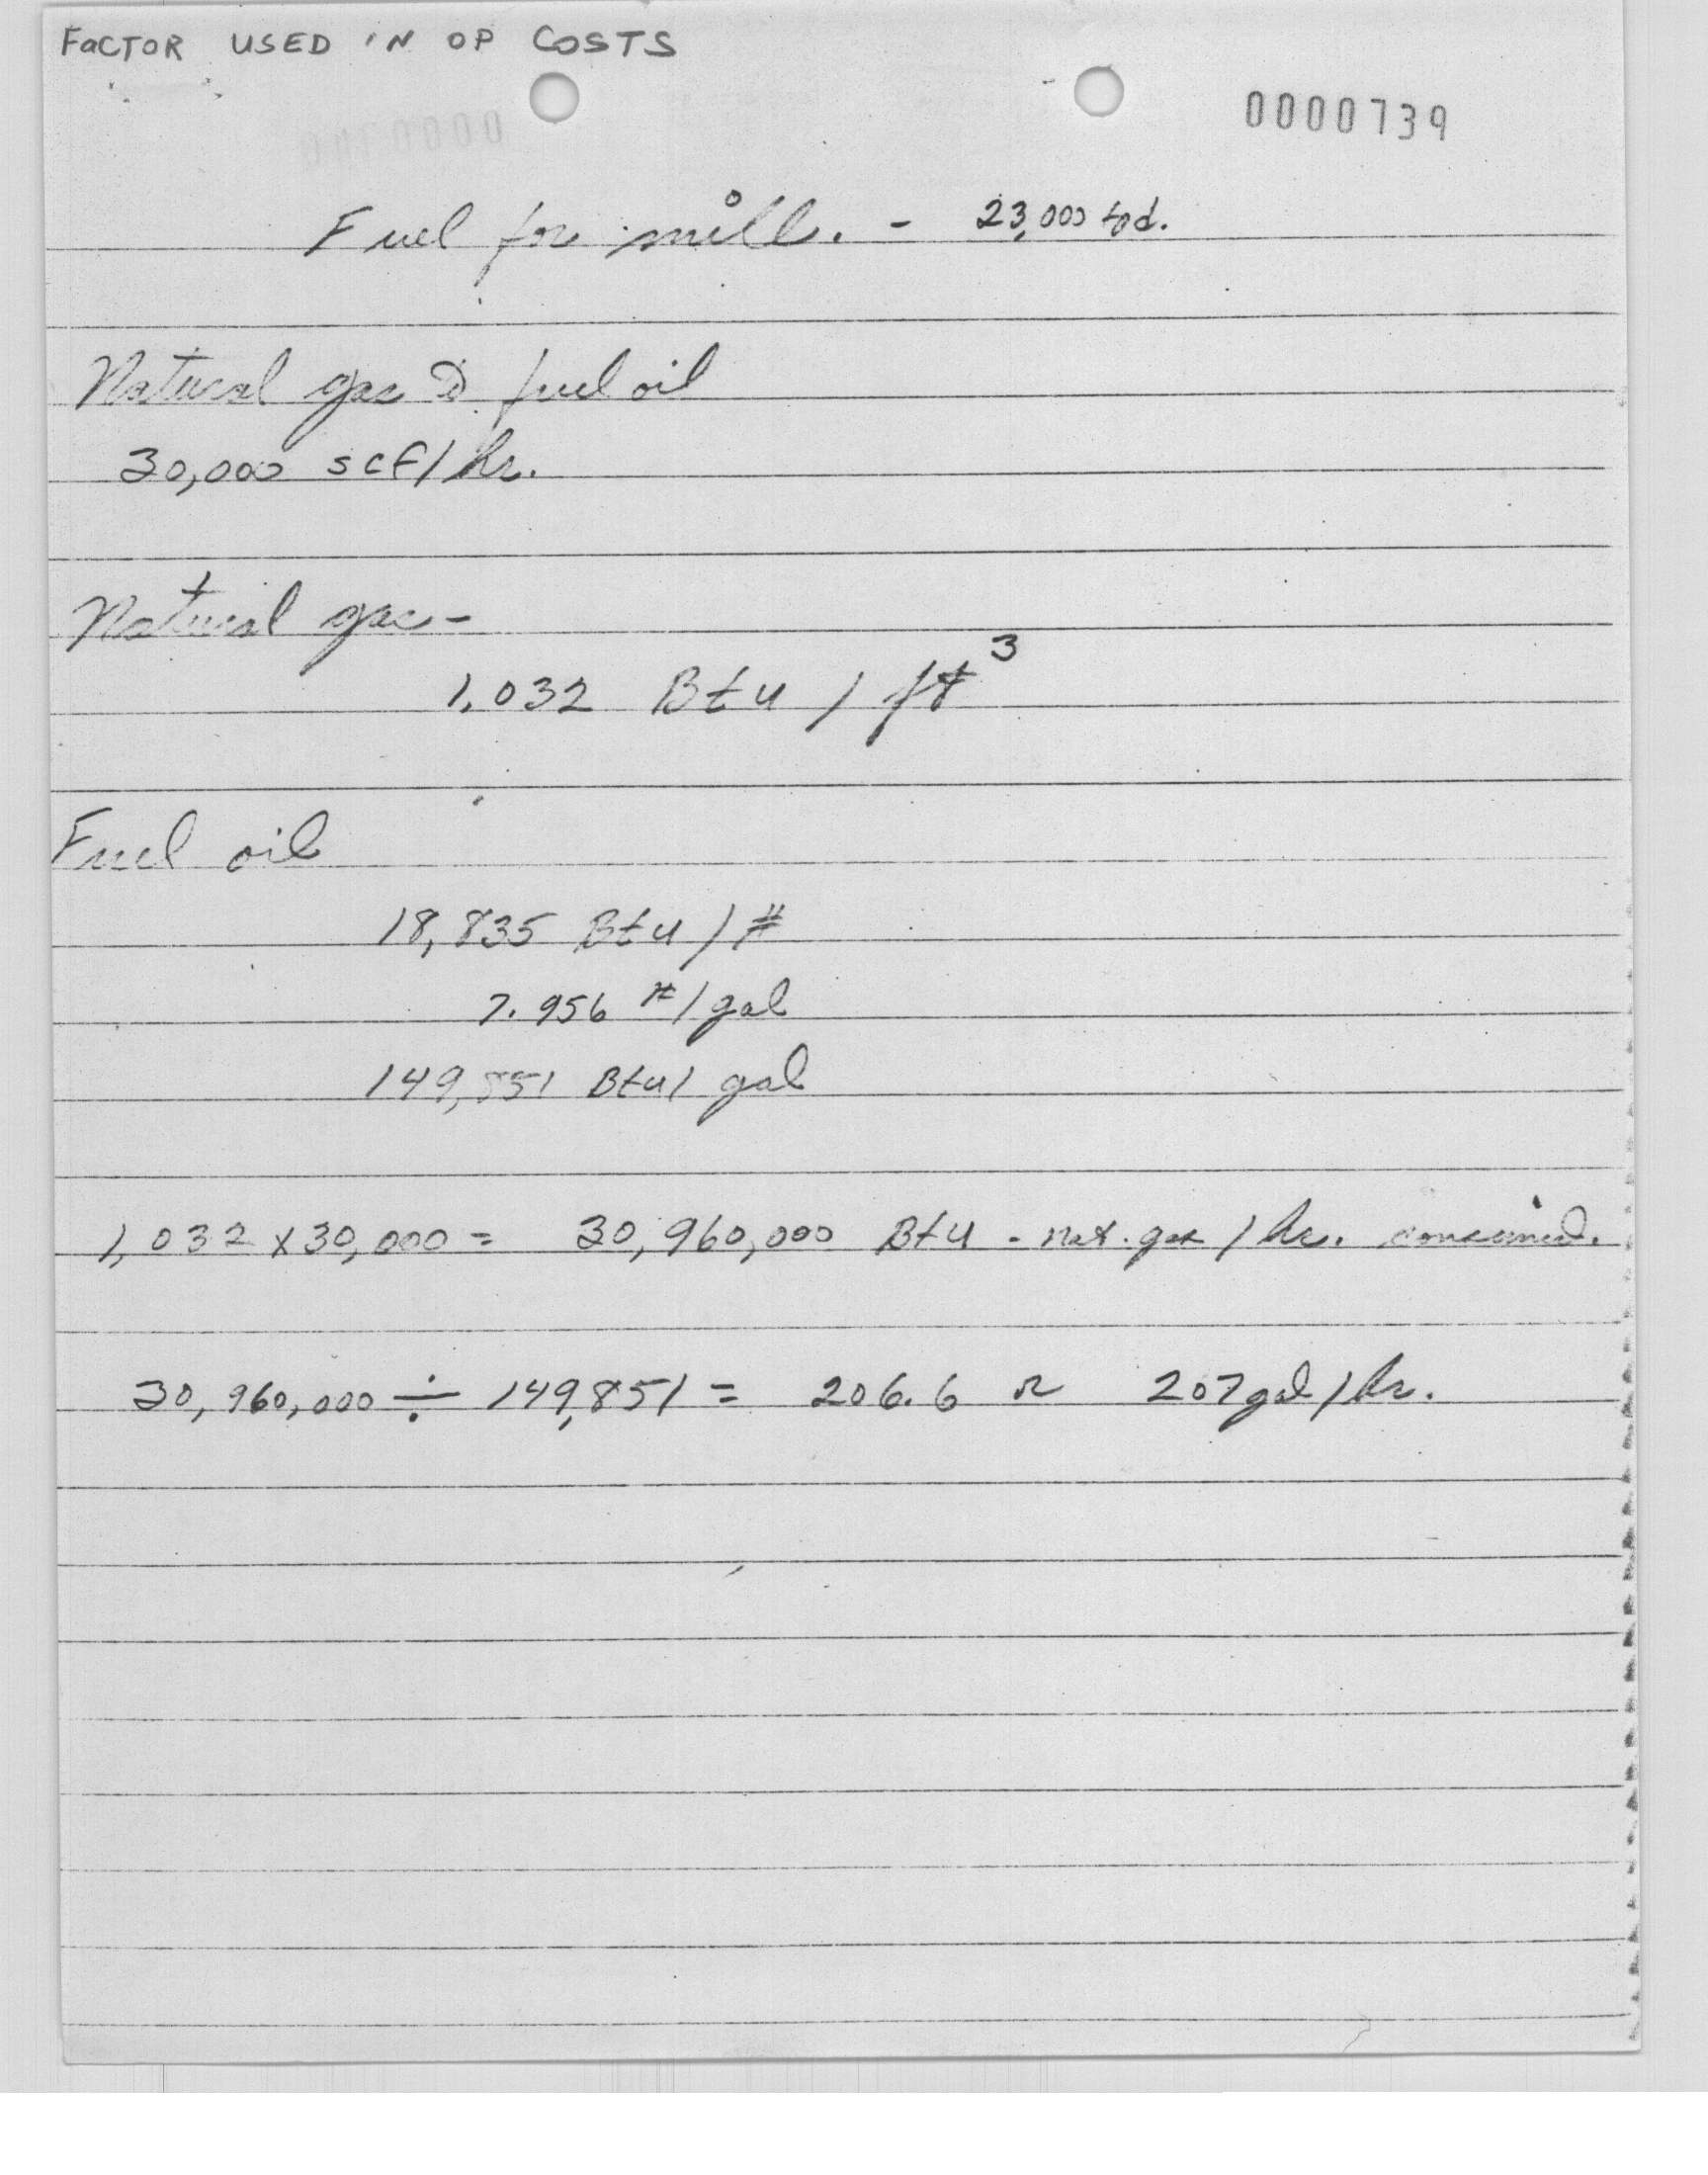 FACTOR USED IN OP COSTS
0000739
Fuel for mill. - 23,000 tpd.
Natural gas & fuel oil
30,000 scf/hr.
Natural gas-
1,032 Btu / ft³
Fuel oil
18,835 Btu / #
7.956 #/gal
149,851 Btu/ gal
1,032 x 30,000 = 30,960,000 Btu - nat. gas / hr. consumed.
30,960,000 ÷ 149,851 = 206.6 or 207 gal / hr.